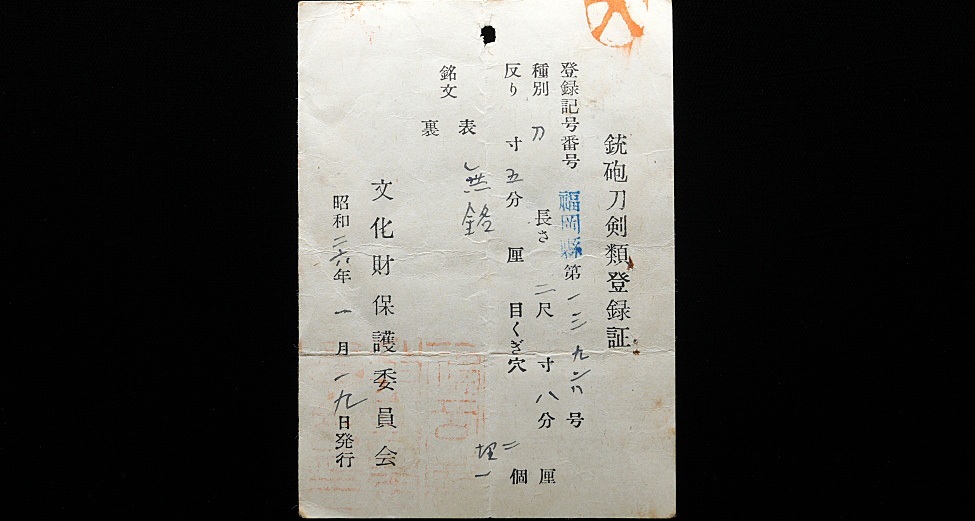 銃砲刀剣類登録証
登録記号番号 福岡縣 第一三九六六号
種別 刀 長さ 二尺 寸八分 厘
反り 寸五分 厘 目くぎ穴 二個
埋一
銘文 表 無銘
裏
文化財保護委員会
昭和二六年一月一九日発行